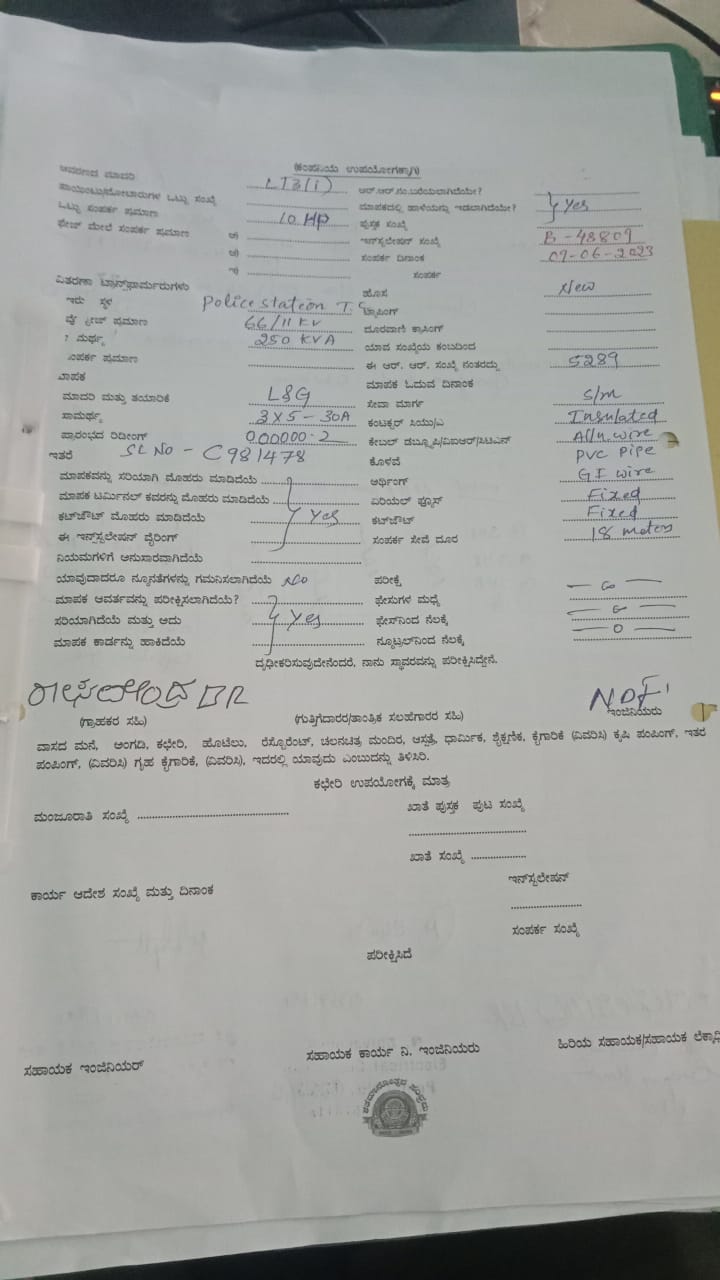 (ಕಂಪನಿಯ ಉಪಯೋಗಕ್ಕಾಗಿ)
ಆವರಣದ ಮಾದರಿ LT3(i) ಆರ್.ಆರ್.ನಂ.ಬರೆಯಲಾಗಿದೆಯೇ?
ಪಾಯಿಂಟು/ಮೋಟಾರುಗಳ ಒಟ್ಟು ಸಂಖ್ಯೆ ಮಾಪಕದಲ್ಲಿ ಹಾಳೆಯನ್ನು ಇಡಲಾಗಿದೆಯೇ? Yes
ಒಟ್ಟು ಸಂಪರ್ಕ ಪ್ರಮಾಣ 10 HP ಪುಸ್ತಕ ಸಂಖ್ಯೆ
ಫೇಜ್ ಮೇಲೆ ಸಂಪರ್ಕ ಪ್ರಮಾಣ ಇನ್‌ಸ್ಟಲೇಷನ್ ಸಂಖ್ಯೆ B-48809
ಸಂಪರ್ಕ ದಿನಾಂಕ 09-06-2023
ಸಂಪರ್ಕ
ವಿತರಣಾ ಟ್ರಾನ್ಸ್‌ಫಾರ್ಮರುಗಳು ಹೊಸ New
ಇರು ಸ್ಥಳ Police station T.C ಟ್ಯಾಪಿಂಗ್
ಪ್ರಮಾಣ 66/11 KV ದೂರವಾಣಿ ಕ್ರಾಸಿಂಗ್
250 KVA ಯಾವ ಸಂಖ್ಯೆಯ ಕಂಬದಿಂದ
ಸಂಪರ್ಕ ಪ್ರಮಾಣ ಈ ಆರ್. ಆರ್. ಸಂಖ್ಯೆ ನಂತರದ್ದು 5289
ಮಾಪಕ ಮಾಪಕ ಓದುವ ದಿನಾಂಕ
ಮಾದರಿ ಮತ್ತು ತಯಾರಿಕೆ L&G ಸೇವಾ ಮಾರ್ಗ S/m
ಸಾಮರ್ಥ್ಯ 3X5-30A ಕಂಟಕ್ಟರ್ ಸಿಯು/ಎ Insulated
ಪ್ರಾರಂಭದ ರಿಡೀಂಗ್ 000000.2 ಕೇಬಲ್ ಡಬ್ಲ್ಯೂಪಿ/ವಿಐಆರ್/ಸಿಟಿಎಸ್ Allu wire
ಇತರೆ SL No - C981478 ಕೊಳವೆ PVC Pipe
ಮಾಪಕವನ್ನು ಸರಿಯಾಗಿ ಮೊಹರು ಮಾಡಿದೆಯೆ ಆರ್ಥಿಂಗ್ GI wire
ಮಾಪಕ ಟರ್ಮಿನಲ್ ಕವರನ್ನು ಮೊಹರು ಮಾಡಿದೆಯೆ ಏರಿಯಲ್ ಫ್ಯೂಸ್ Fixed
ಕಟ್‌ಔಟ್ ಮೊಹರು ಮಾಡಿದೆಯೆ Yes ಕಟ್‌ಔಟ್ Fixed
ಈ ಇನ್‌ಸ್ಟಲೇಷನ್ ವೈರಿಂಗ್ ಸಂಪರ್ಕ ಸೇವೆ ದೂರ 18 meters
ನಿಯಮಗಳಿಗೆ ಅನುಸಾರವಾಗಿದೆಯೆ
ಯಾವುದಾದರೂ ನ್ಯೂನತೆಗಳನ್ನು ಗಮನಿಸಲಾಗಿದೆಯೆ NO ಪರೀಕ್ಷೆ
ಮಾಪಕ ಆವರ್ತವನ್ನು ಪರೀಕ್ಷಿಸಲಾಗಿದೆಯೆ? ಫೇಸುಗಳ ಮಧ್ಯೆ
ಸರಿಯಾಗಿದೆಯೆ ಮತ್ತು ಅದು Yes ಫೇಸ್‌ನಿಂದ ನೆಲಕ್ಕೆ
ಮಾಪಕ ಕಾರ್ಡನ್ನು ಹಾಕಿದೆಯೆ ನ್ಯೂಟ್ರಲ್‌ನಿಂದ ನೆಲಕ್ಕೆ
ದೃಢೀಕರಿಸುವುದೇನೆಂದರೆ, ನಾನು ಸ್ಥಾವರವನ್ನು ಪರೀಕ್ಷಿಸಿದ್ದೇನೆ.
(ಗ್ರಾಹಕರ ಸಹಿ) (ಗುತ್ತಿಗೆದಾರರ/ತಾಂತ್ರಿಕ ಸಲಹೆಗಾರರ ಸಹಿ) ಇಂಜಿನಿಯರು
ವಾಸದ ಮನೆ, ಅಂಗಡಿ, ಕಛೇರಿ, ಹೊಟೆಲು, ರೆಸ್ಟೊರೆಂಟ್, ಚಲನಚಿತ್ರ ಮಂದಿರ, ಆಸ್ಪತ್ರೆ, ಧಾರ್ಮಿಕ, ಶೈಕ್ಷಣಿಕ, ಕೈಗಾರಿಕೆ (ವಿವರಿಸಿ) ಕೃಷಿ ಪಂಪಿಂಗ್, ಇತರೆ
ಪಂಪಿಂಗ್, (ವಿವರಿಸಿ) ಗೃಹ ಕೈಗಾರಿಕೆ, (ವಿವರಿಸಿ), ಇದರಲ್ಲಿ ಯಾವುದು ಎಂಬುದನ್ನು ತಿಳಿಸಿರಿ.
ಕಛೇರಿ ಉಪಯೋಗಕ್ಕೆ ಮಾತ್ರ
ಮಂಜೂರಾತಿ ಸಂಖ್ಯೆ ಖಾತೆ ಪುಸ್ತಕ ಪುಟ ಸಂಖ್ಯೆ
ಖಾತೆ ಸಂಖ್ಯೆ
ಕಾರ್ಯ ಆದೇಶ ಸಂಖ್ಯೆ ಮತ್ತು ದಿನಾಂಕ ಇನ್‌ಸ್ಟಲೇಷನ್
ಸಂಪರ್ಕ ಸಂಖ್ಯೆ
ಪರೀಕ್ಷಿಸಿದೆ
ಸಹಾಯಕ ಇಂಜಿನಿಯರ್ ಸಹಾಯಕ ಕಾರ್ಯ ನಿ. ಇಂಜಿನಿಯರು ಹಿರಿಯ ಸಹಾಯಕ/ಸಹಾಯಕ